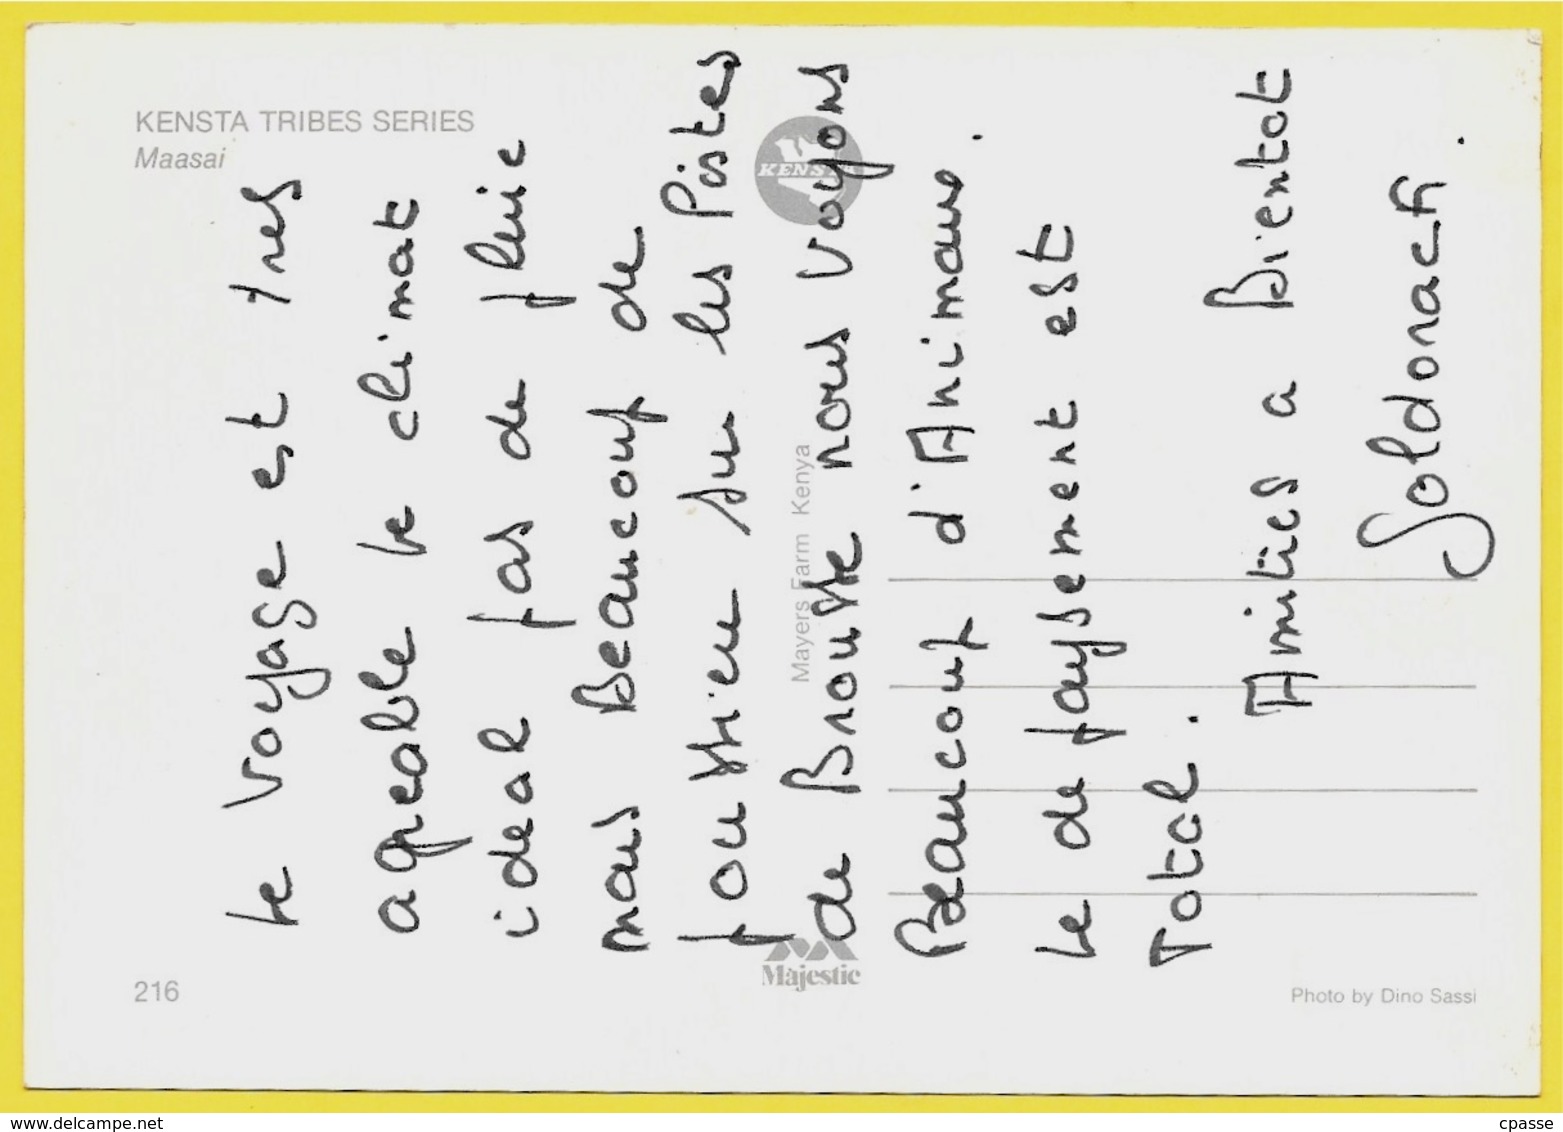 KENSTA TRIBES SERIES
Maasai
KENSTA
Mayers Farm Kenya
Le voyage est tres
agreable le climat
ideal pas de pluie
mais Beaucoup de
poussiere sur les Pistes
de Brousse nous voyons
Beaucoup d'Animaux.
Le depaysement est
Total.
Amities a Bientot
216
Majestic
Photo by Dino Sassi
www.delcampe.net
cpasse